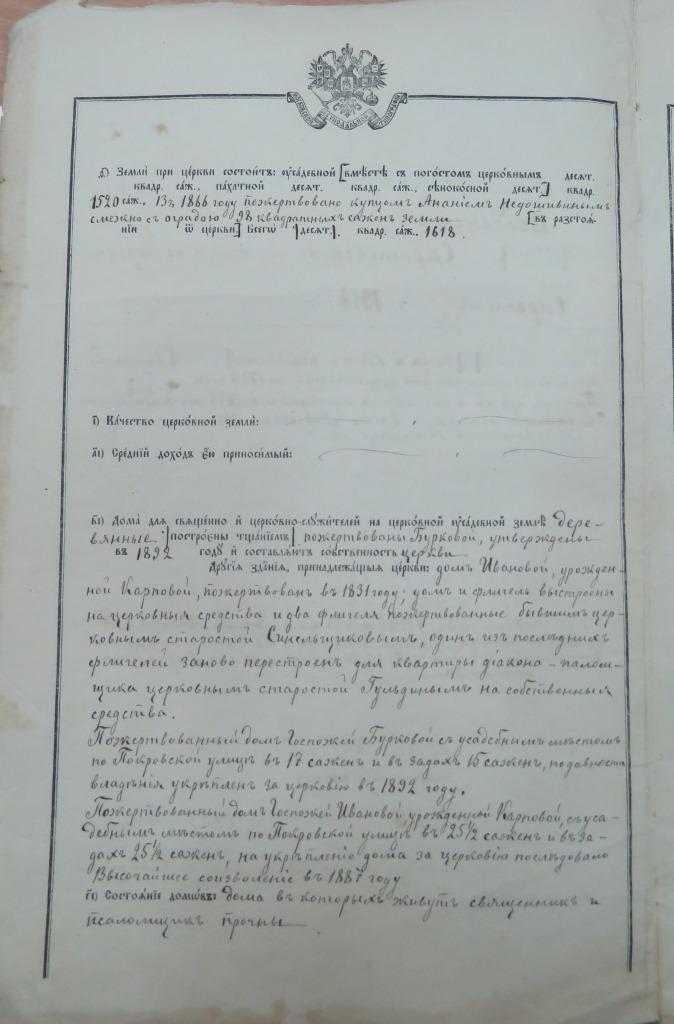 ѳ҃) Земли при церкви состоитъ: усадебной [вмѣстѣ съ погостомъ церковнымъ десят.
квадр. саж., пахатной десят. квадр. саж., сѣнокосной десят] квадр.
1520 саж.. Въ 1866 году пожертвовано купцомъ Ананіемъ Недошивинымъ
смежно съ оградою 98 квадратныхъ саженъ земли [въ разстоя-
ніи ѿ церкви] Всего [десят]. квадр. саж.. 1618.
і҃) Качество церковной земли:
а҃і) Средній доходъ ею приносимый:
в҃і) Дома для священно и церковно-служителей на церковной усадебной землѣ дере-
вянные [построены тщаніемъ] пожертвованы Бурковой, утверждены
въ 1892 году и составляютъ собственность церкви
Другія зданія, принадлежащыя церкви: домъ Ивановой, урожден-
ной Карповой, пожертвован въ 1831 году; домъ и флигель выстроены
на церковныя средства и два флигеля пожертвованные бывшимъ цер-
ковнымъ старостой Синельщиковымъ, одинъ изъ послѣднихъ
флигелей заново перестроен для квартиры діакона-псалом-
щика церковнымъ старостой Гульдинымъ на собственныя
средства.
Пожертвованный домъ Госпожей Бурковой съ усадебнымъ мѣстомъ
по Покровской улицѣ въ 17 сажен и въ задахъ 15 сажен, по давности
владѣнія укрѣплен за церковію въ 1892 году.
Пожертвованный домъ Госпожей Ивановой урожденной Карповой, съ уса-
дебнымъ мѣстомъ по Покровской улицѣ въ 25½ сажен и въ за-
дахъ 25½ сажен, на укрѣпленіе дома за церковію послѣдовало
Высочайшее соизволеніе въ 1887 году
г҃і) Состояніе домовъ: дома въ которыхъ живутъ священникъ и
псаломщик прочны.